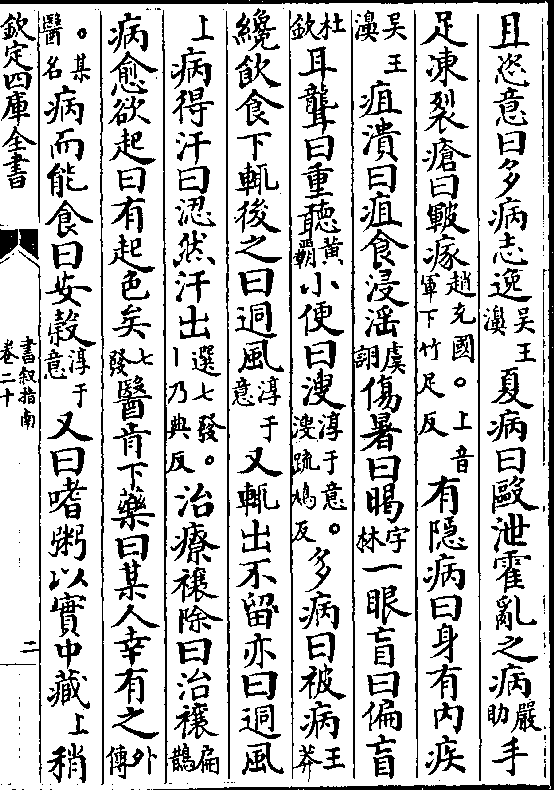 且恣意曰多病志逸吳王濞夏病曰歐泄霍亂之病嚴助手
足凍裂瘡曰皸瘃趙充國。上音軍下竹足反有隱病曰身有内疾
吳王濞疽潰曰疽食浸淫虞詡傷暑曰暍字林一眼盲曰偏盲
杜欽耳聾曰重聽黄霸小便曰溲淳于意。溲疏鳩反多病曰被病王莽
纔飲食下輒後之曰迵風淳于意又輒出不留亦曰迵風
上病得汗曰涊然汗出選七發。丨乃典反治療禳除曰治禳扁鵲
病愈欲起曰有起色矣七發醫肯下藥曰某人幸有之外傳
。某醫名病而能食曰安穀淳于意又曰嗜粥以實中藏上稍
欽定四庫全書
書叙指南
卷二十
二